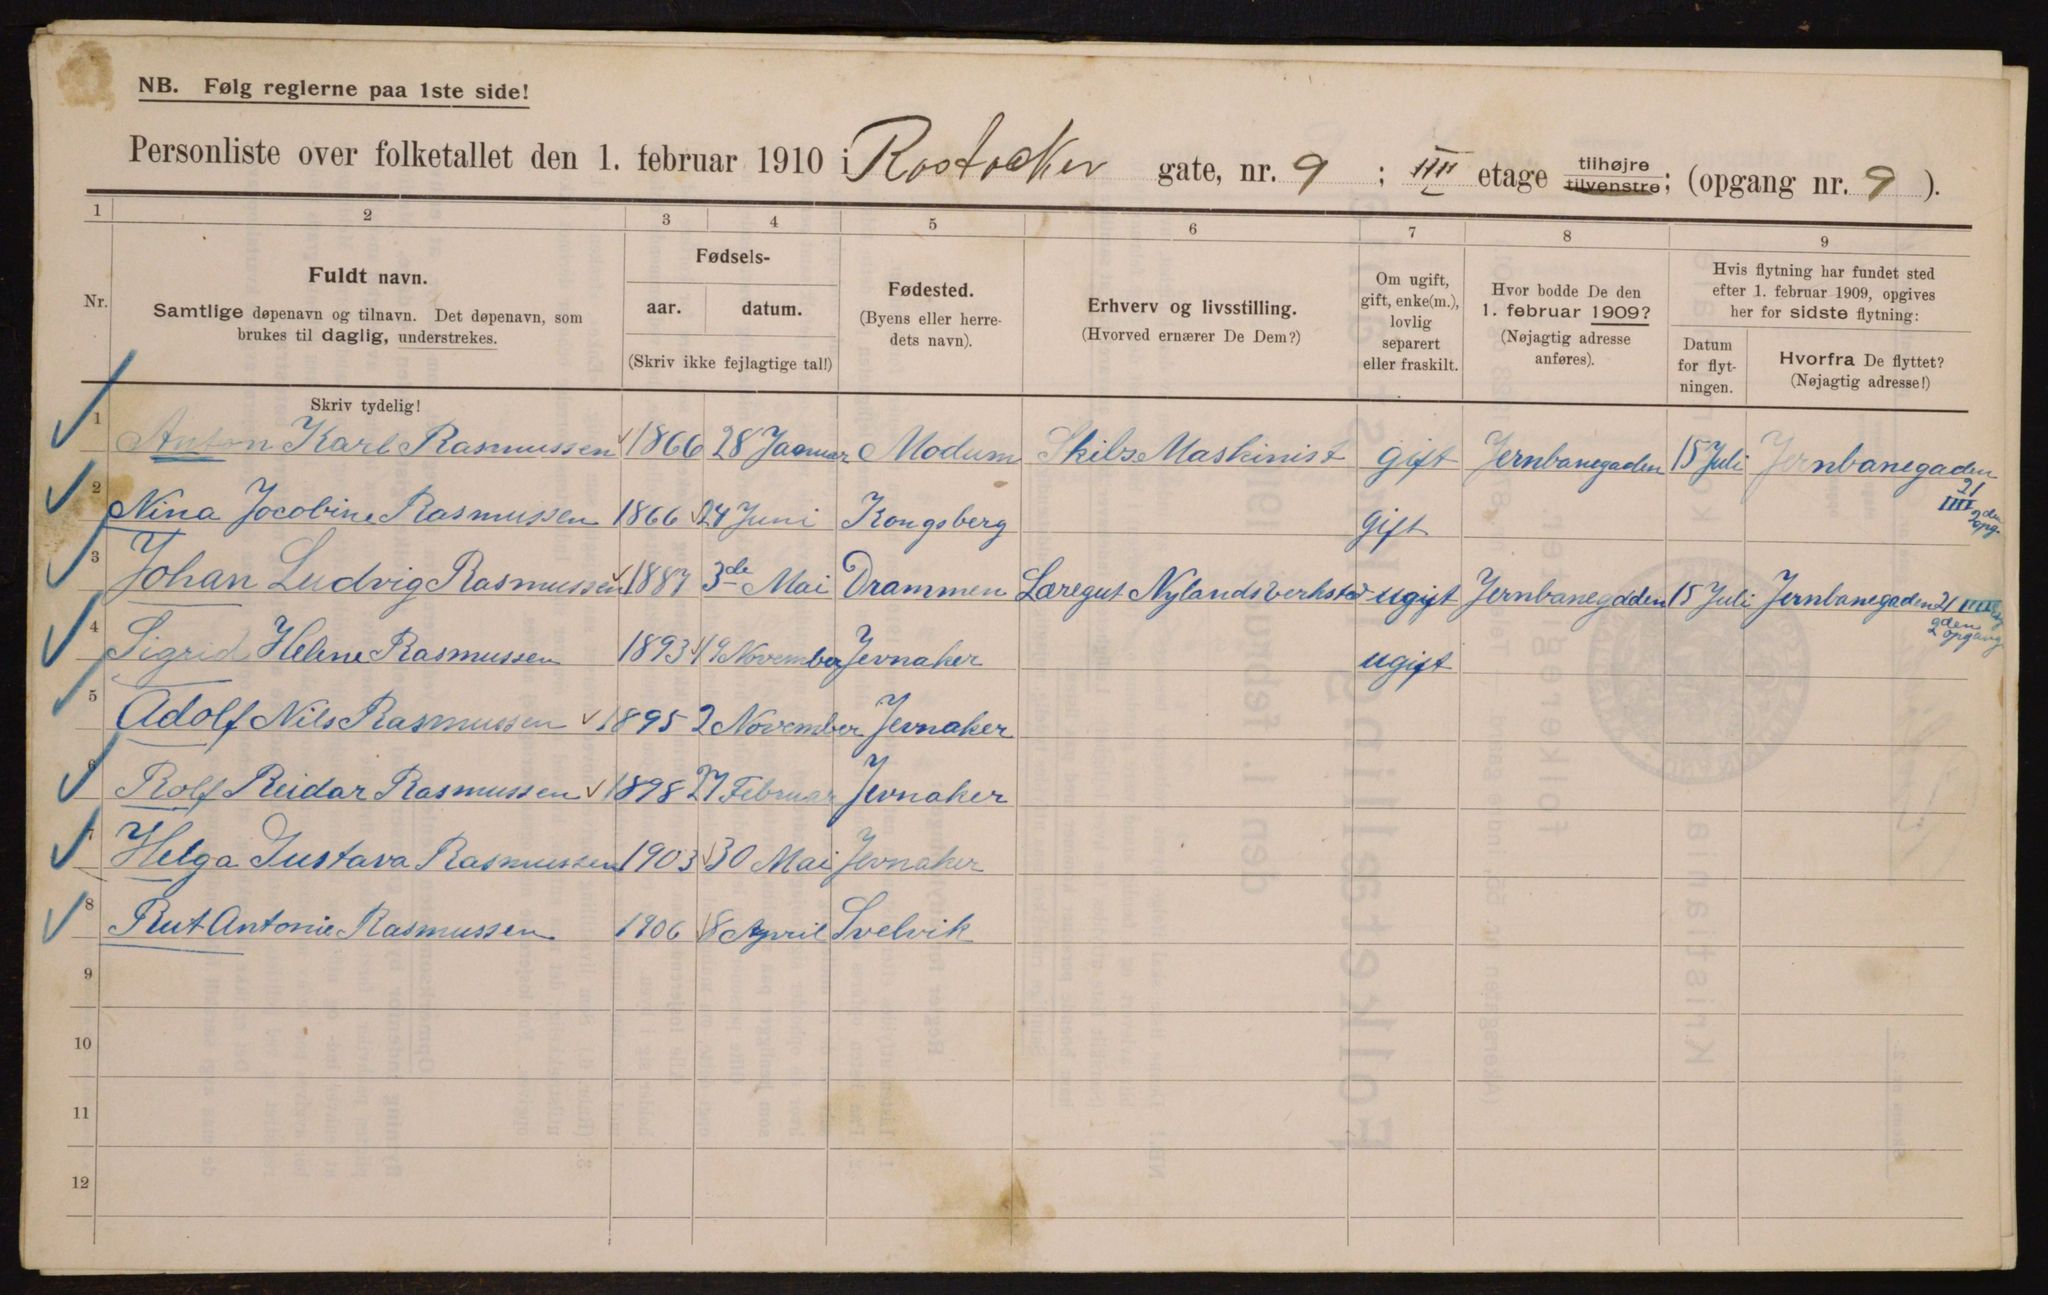 NB. Følg reglerne paa 1ste side!
Personliste over folketallet den 1. februar 1910 i Rostocker gate, nr. 9 ; IIII etage tilhøjre tilvenstre; (opgang nr. 9 ).
1 2 3 4 5 6 7 8 9
Nr.
Fuldt navn.
Samtlige døpenavn og tilnavn. Det døpenavn, som
brukes til daglig, understrekes.
Skriv tydelig!
Fødsels-
aar. datum.
(Skriv ikke fejlagtige tal!)
Fødested.
(Byens eller herre-
dets navn).
Erhverv og livsstilling.
(Hvorved ernærer De Dem?)
Om ugift,
gift, enke(m.),
lovlig
separert
eller fraskilt.
Hvor bodde De den
1. februar 1909?
(Nøjagtig adresse
anføres).
Hvis flytning har fundet sted
efter 1. februar 1909, opgives
her for sidste flytning:
Datum
for flyt-
ningen.
Hvorfra De flyttet?
(Nøjagtig adresse!)
1 Anton Karl Rasmussen 1866 28 Januar Modum Skibs Maskinist gift Jernbanegaden 15 Juli Jernbanegaden
21
IIII 2den opg.
2 Nina Jocobine Rasmussen 1866 24 Juni Kongsberg gift
3 Johan Ludvig Rasmussen 1887 3de Mai Drammen Læregut Nylandsverksted ugift Jernbanegdden 15 Juli Jernbanegaden 21 IIII
2den opgang
4 Sigrid Helene Rasmussen 1893 19 November Jevnaker ugift
5 Adolf Nils Rasmussen 1895 2 November Jevnaker
6 Rolf Reidar Rasmussen 1898 27 Februar Jevnaker
7 Helga Gustava Rasmussen 1903 30 Mai Jevnaker
8 Rut Antonie Rasmussen 1906 8 April Svelvik
9
10
11
12